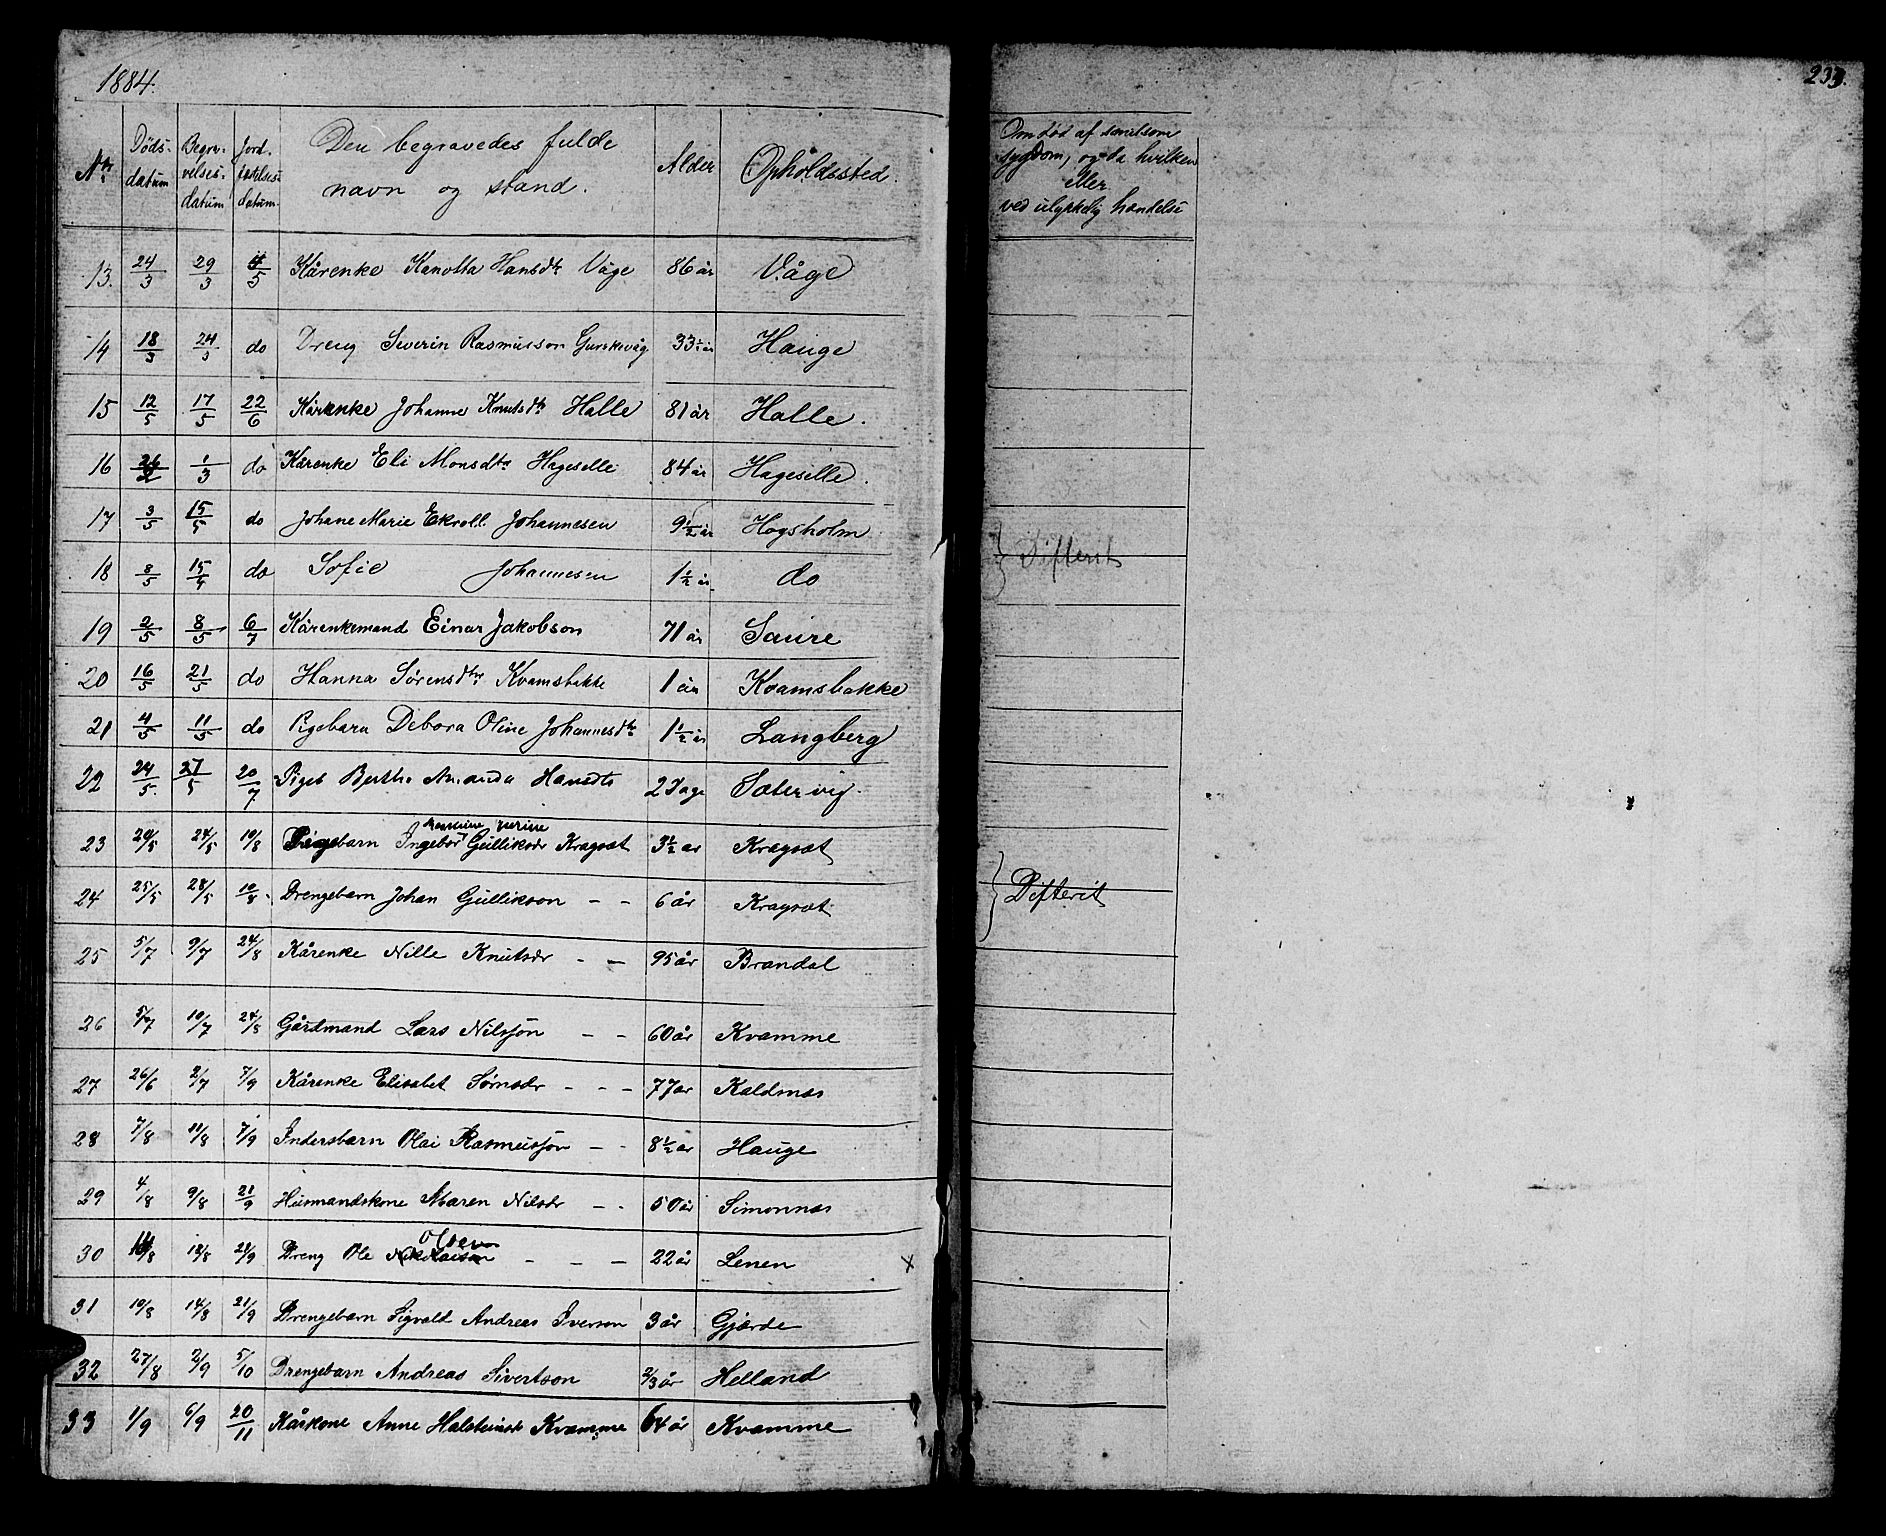 1884.
233.
Nr. Dødsdatum Begravelsesdatum Jordfæstelsesdatum. Den begravedes fulde navn og stand. Alder Opholdssted. Om død af smitsom sygdom, og da hvilken eller ved ulykkelig hændelse
13. 24/3 29/3 4/5 Kårenke Hansdtr Våge 86 år Våge
14 18/3 24/3 do Dreng Severin Rasmusson Gurskevåg 33½ år Hauge
15 12/5 17/5 22/6 Kårenke Johanne Knutsdtr Halle 81 år Halle.
16 1/3 do Kårenke Eli Monsdtr Hageselle 84 år Hageselle.
17 3/5 15/5 do Johane Marie Ekroll Johannesen 9½ år Hogsholm
18 8/5 do Sofie Johannesen 1½ år do } Difterit
19 2/5 8/5 6/7 Kårenkemand Einar Jakobson 71 år Saure
20 16/5 21/5 do Hanna Sørensdtr Kvamsbakke 1 år Kvamsbakke
21 4/5 11/5 do Pigebarn Debora Oline Johannesdtr 1½ år Langberg
22 24/5. 27/5 20/7 Pigeb Berthe Amanda Hansdtr 2 Dage Sætervig.
23 20/5 24/5 10/8 Pigebarn Ingebor Gulliksdr Kragsæt 3½ år Kragsæt
24 25/5 28/5 10/8 Drengebarn Johan Gullikson - - 6 år Kragsæt } Difterit
25 5/7 9/7 24/8 Kårenke Nille Knutsdr - - 95 år Brandal
26 5/7 10/7 24/8 Gårdmand Lars Nilsson - - 60 år Kvamme
27 26/6 2/7 7/9 Kårenke Elisabet Sørnsdr - - - 77 år Kaldnæs
28 7/8 11/8 7/9 Indersbarn Olai Rasmusson - - 8½ år Hauge
29 4/8 9/8 21/9 Husmandskone Maren Nilsdr - - 50 år Simonnæs
Olsen
30 12/8 21/9 Dreng Ole Nikolaisen - - - 22 år Lenen x
31 10/8 14/8 21/9 Drengebarn Sigvald Andreas Iverson 3 år Gjærde
32 27/8 2/9 5/10 Drengebarn Andreas Sivertson 2/3 år Helland
33 1/9 6/9 20/11 Kårkone Anne Halsteinsdr Kvamme 64 år Kvamme